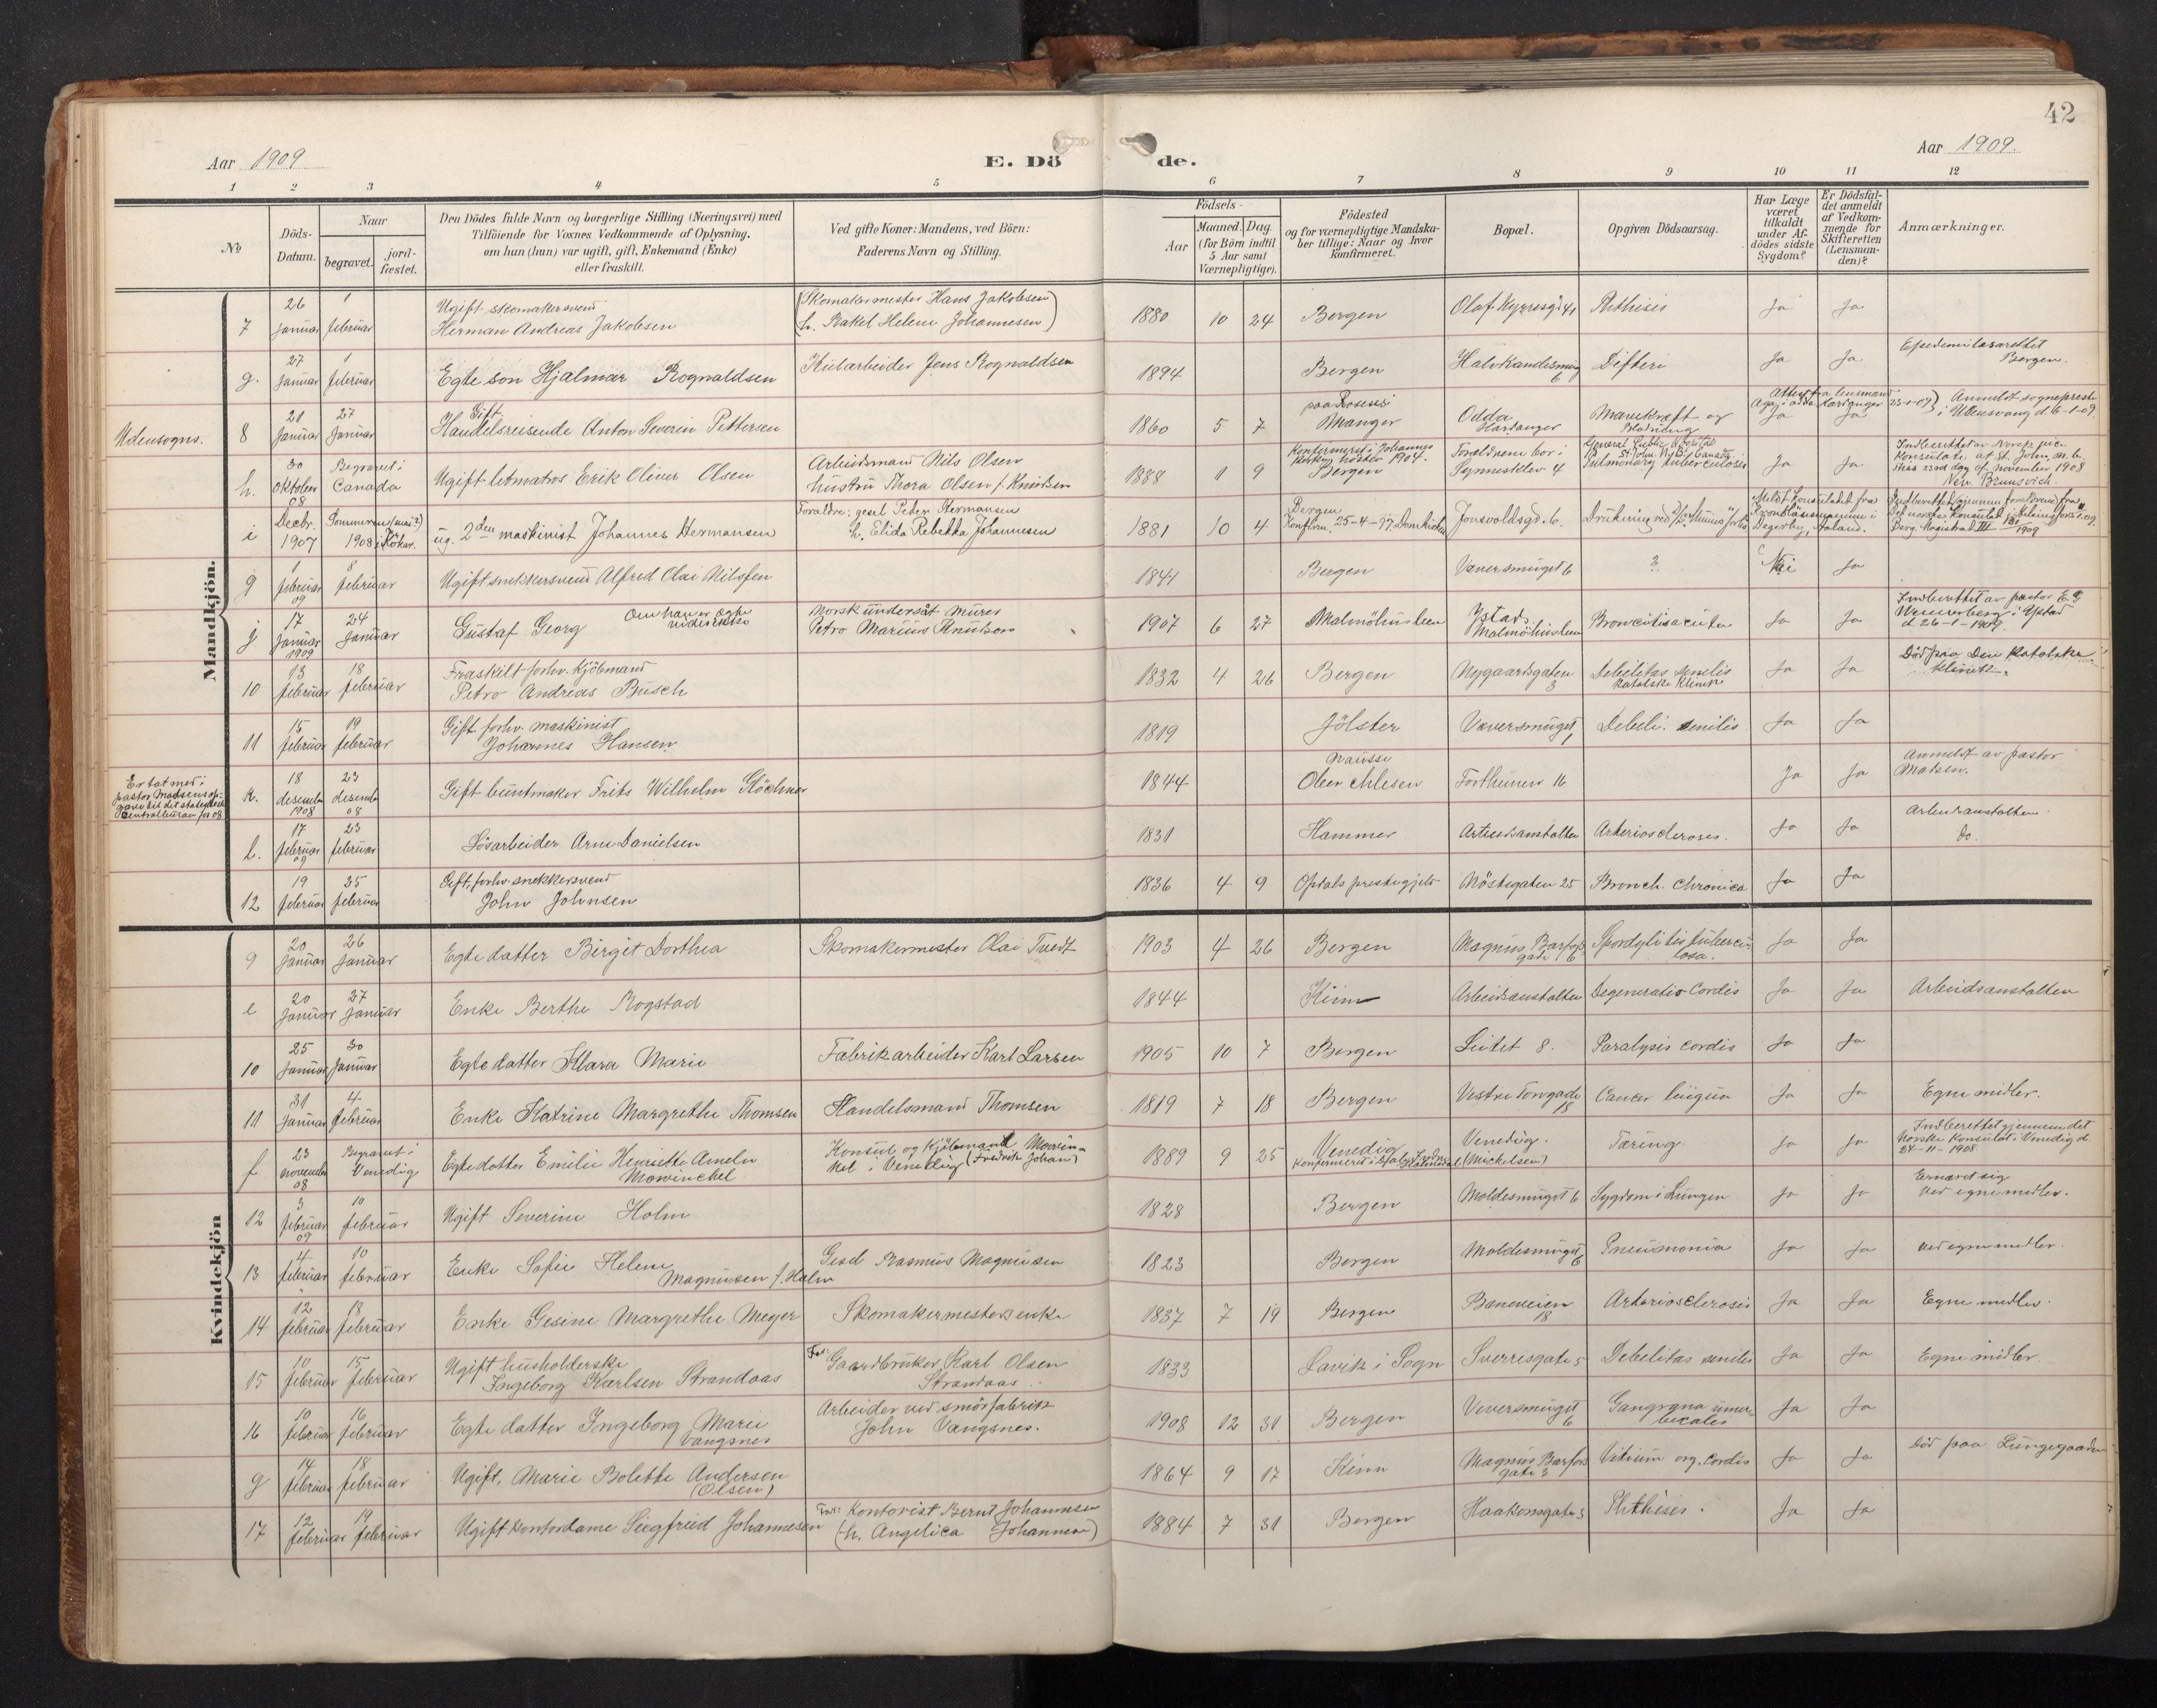 42
Aar 1909
E. Dö
de.
Aar 1909.
1 2 3 4 5 6 7 8 9 10 11 12
No
Döds-Datum.
Naar
begravet.
jord-fæstet.
Den Dödes fulde Navn og borgerlige Stilling (Næringsvei) med
Tilföiende for Voxnes Vedkommende af Oplysning.
om han (hun) var ugift, gift, Enkemand (Enke)
eller fraskilt.
Ved gifte Koner: Mandens, ved Börn:
Faderens Navn og Stilling.
Födsels-
Aar
Maaned.
Dag.
(for Börn indtil
5 Aar samt
Værnepligtige).
Födested
og for værnepligtige Mandska-
ber tillige: Naar og hvor
konfirmeret.
Bopæl.
Opgiven Dödsaarsag.
Har Læge
været
tilkaldt
under Af-
dödes sidste
Sygdom?
Er Dödsfal-
det anmeldt
af Vedkom-
mende for
Skifteretten
(Lensman-
den)?
Anmærkninger.
Mandkjön.
7 26 januar 1 februar Ugift skomakersvend Herman Andreas Jakobsen (Skomakermester Hans Jakobsen h. Rakel Helene Johannesen) 1880 10 24 Bergen Olaf Kyrresgd 41 Phthisis Ja Ja
g. 27 januar 1 februar Egte søn Hjalmar Rognaldsen Kularbeider Jens Rognaldsen 1894 Bergen Difteri Ja Ja Epedemilasarettet Bergen.
Udensogns. 8 21 januar 27 januar Gift Handelsreisende Anton Severin Pettersen 1860 5 7 Manger Odda Hardanger Mavekræft og Blødning Ja Ja Anmeldt sogneprest i Ullensvang d. 6-1-09
h. 30 oktober 08 Begravet i Canada Ugift letmatros Erik Oliver Olsen Arbeidsmand Nils Olsen hustru Thora Olsen f. Knutsen 1888 1 9 Konfirmeret i Johannes kirken høsten 1904. Bergen Forældrene bor i 4 General Public Hospital St. John N.B. Canada Pulmonary tuberculosis Ja Ja Indberettet av Norsk vice Konsulate at St. John, N.B. this 23rd day of November 1908 New Brunsvich.
i Decbr. 1907 Sommeren (mai?) 1908 i Kökar. ug. 2den maskinist Johannes Hermansen Forældre: gesel Peter Hermansen h. Elida Rebekka Johannesen 1881 10 4 Bergen Konfirm. 25-4-97 Domkirken Jonsvoldsgd. 6. Drukning ved Meldt Konsulatet fra i Degerby, Aaland. Indberettet gjennem forældrene fra Det norske Konsulat i Helsingfors
9 1 februar 09 8 februar Ugift snekkersvend Alfred Olai Nilssen 1841 Bergen Væversmuget 6 ? Nei Ja
j 17 januar 1909 24 januar Gustaf Georg Om han er egte vides ikke Norsk undersåt murer Petro Marius Knutsen 1907 6 27 Malmöhuslen Ystad, Malmöhuslen Broncitis acuta Ja Ja Indberettet av pastor E. G. Wennerberg i Ystad d. 26-1-1909.
10 13 februar 18 februar Fraskilt forhv. Kjöbmand Petro Andreas Busch 1832 4 26 Bergen Nygaardsgaten 3 Debilitas senilis Katolske Klinik Ja Ja Död paa Den katolske klinik.
11 15 februar 19 februar Gift forhv. maskinist Johannes Hansen 1819 Jölster Væversmuget 1 Debili. senilis Ja Ja
Er tat med i pastor Madsens op- gave til det statistiske Centralbureau for 08 k. 18 desember 1908 23 desember 08 Gift buntmaker Frits Wilhelm Glöckner 1844 Forthunen 16 Ja Ja Anmeldt av pastor Madsen.
l. 17 februar 09 23 februar Løsarbeider Arne Danielsen 1831 Hammer Arbeidsanstalten Arterioscleroses. Ja Ja Arbeidsanstalten do.
12 19 februar 25 februar Gift, forhv. snekkersvend John Johnsen 1836 4 9 Opdals prestegjeld Nöstegaten 25 Bronch. chronica Ja Ja
Kvindekjön
9 20 januar 26 januar Egte datter Birgit Dorthea Skomakermester Olai Tvedt 1903 4 26 Bergen Magnus Barfods gate 6 Spondylitis tuberculosa. Ja Ja
e 20 januar 27 januar Enke Berthe Rogstad 1844 Kinn Arbeidsanstalten Degeneratio cordis Ja Ja Arbeidsanstalten
10 25 januar 30 januar Egte datter Klara Marie Fabrikarbeider Karl Larsen 1905 10 7 Bergen Leitet 8. Paralysis cordis Ja Ja
11 31 januar 4. februar Enke Katrine Margrethe Thomsen Handelsmand Thomsen 1819 7 18 Bergen Vestre Torvgade 18 Cancer lingua Ja Ja Egne midler.
f 23 november 08 Begravet i Venedig Egte datter Emilie Henriette Ameln Mowinckel Konsul og Kjöbmand Mowinkel i Venedig (Fredrik Johan) 1889 9 25 Venedig Venedig. (Mickelsen) Tæring. Ja Ja Indberettet gjennem det Norske Konsulat i Venedig d. 24-11-1908.
12 3 februar 09 10 februar Ugift Severine Holm 1828 Bergen Moldesmuget 6 Sygdom i Lungen Ja Ja Ernæret sig ved egne midler.
13 4 februar 10 februar Enke Sofie Helene Magnusen f. Holm Gesel Rasmus Magnusen 1823 Bergen Moldesmuget 6 Pneumonia Ja Ja ved egne midler.
14 12 februar 18 februar Enke Gesine Margrethe Meyer Skomakermesters enke 1837 7 19 Bergen Baneveien 18 Arteriosclerosis Ja Ja Egne midler.
15 10 februar 15 februar Ugift husholderske Ingeborg Karlsen Strandaas Far: Gaardbruker Karl Olsen Strandaas. 1833 Lavik i Sogn Sverresgate 5 Debelitas senilis Ja Ja Egne midler.
16 10 februar 16 februar Egte datter Ingeborg Marie Vangsnes Arbeider ved smörfabrik John Vangsnes. 1908 12 31 Bergen Veversmuget 6 Gangræna umerbecales Ja Ja
g 14 februar 18 februar Ugift, Marie Bolette Andersen (Olsen) 1864 9 17 Kinn Magnus Barfods gate 3 Vitium org. cordis Ja Ja Død paa Lungegaarden
17 12 februar 19 februar Ugift kontordame Siegfried Johannesen Far: Kontorist Bernt Johannesen (h. Angelica Johannesen) 1884 7 31 Bergen Haakonsgate 3 Phthisis. Ja Ja